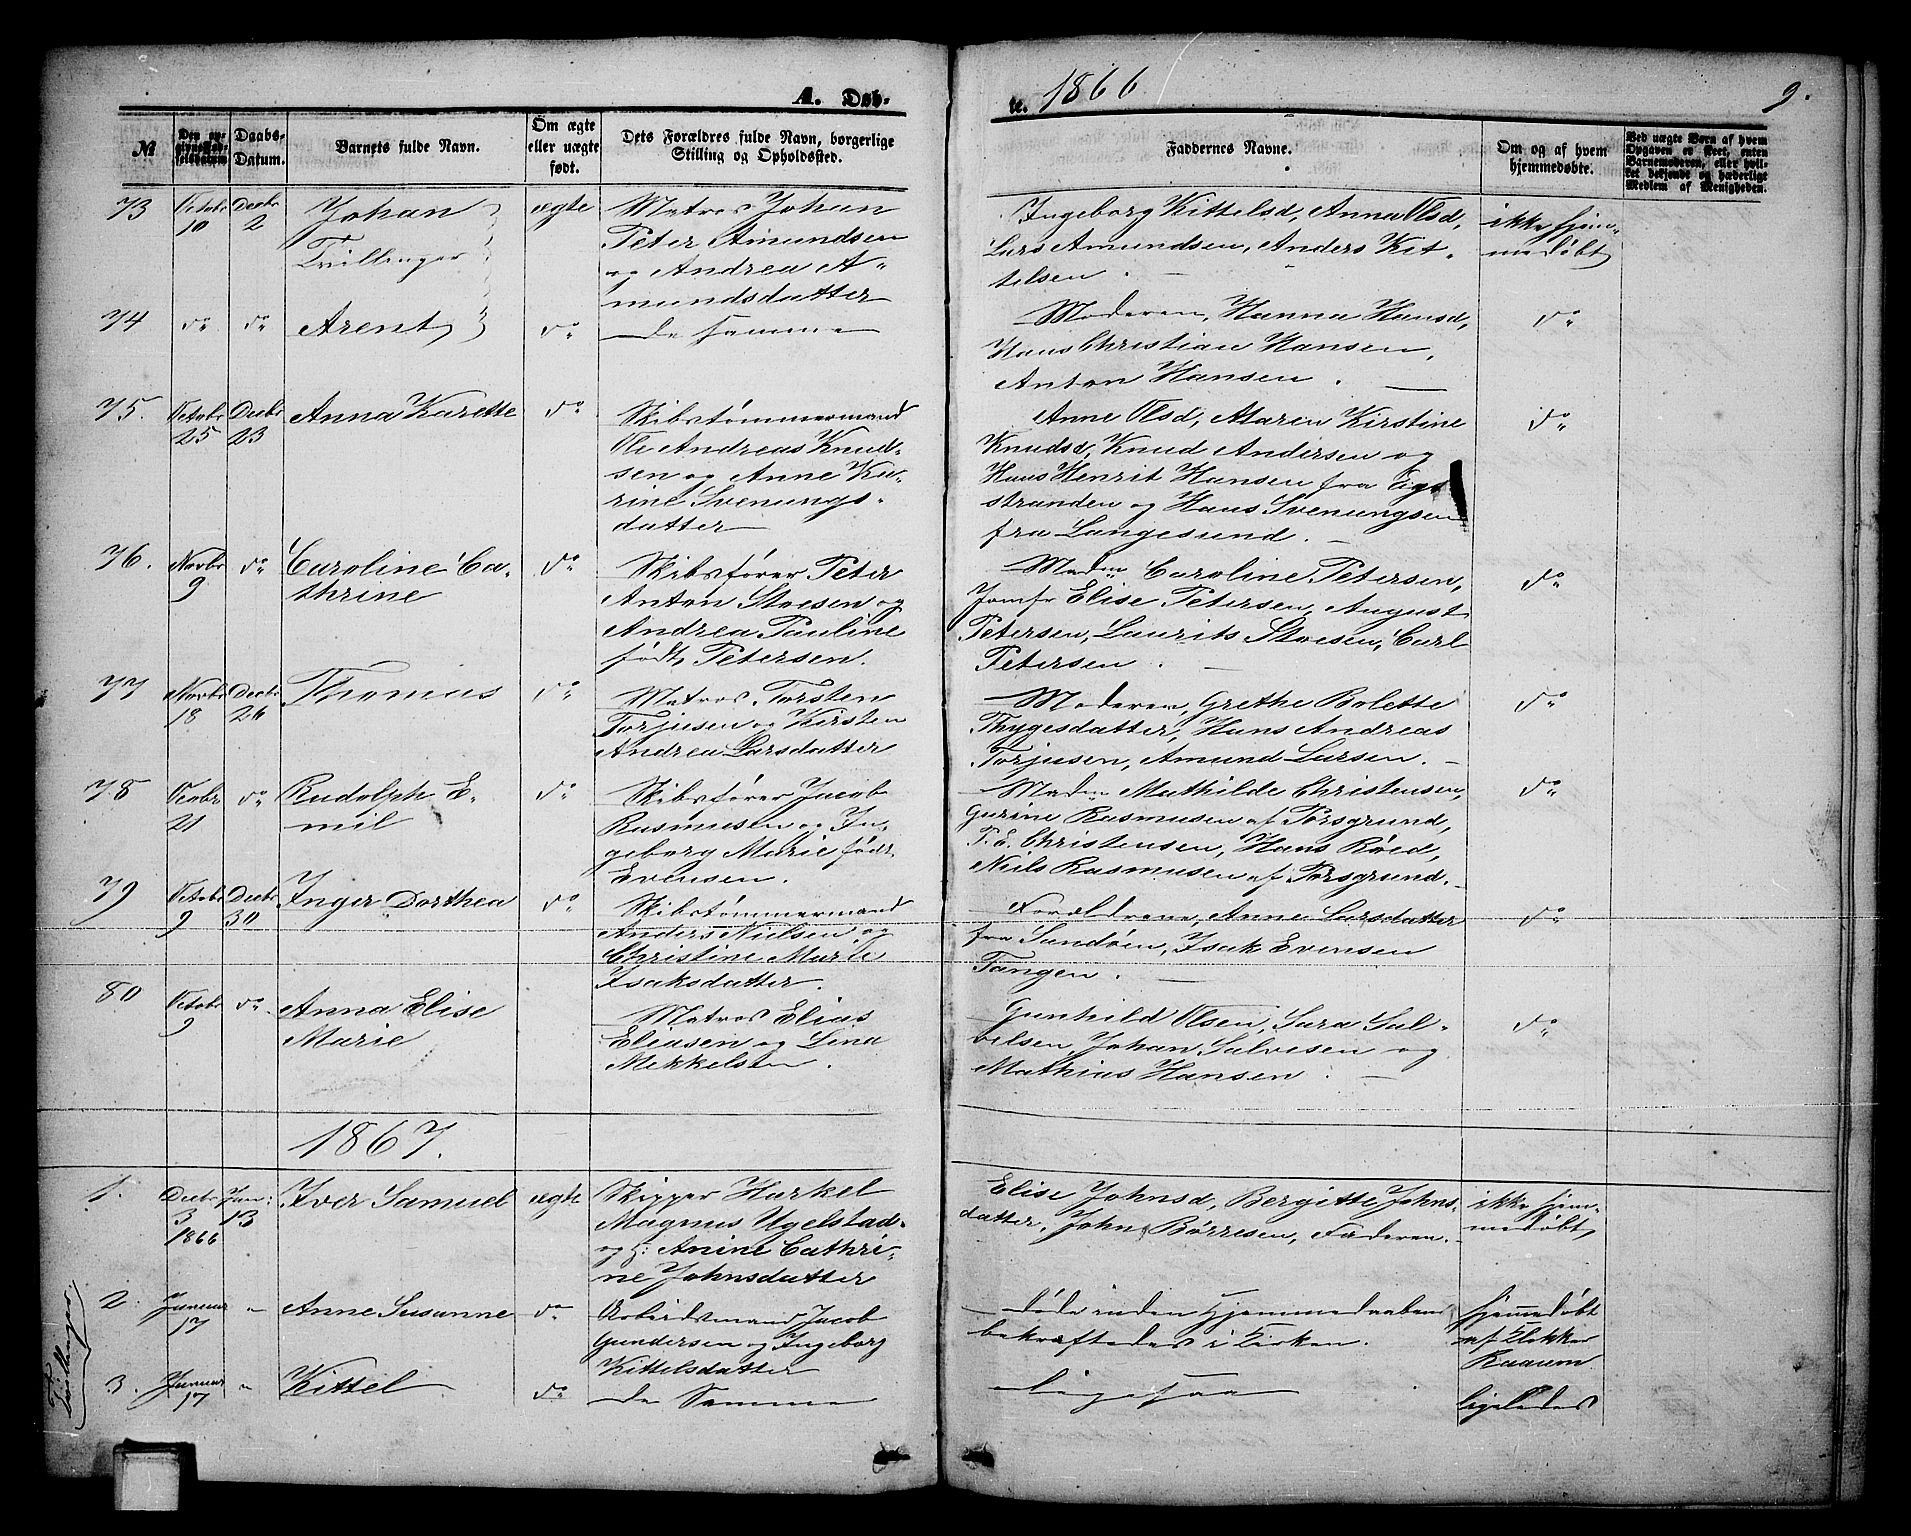 A. Døb-
te. 1866
9.
№
Den opgivne Fødselsdatum.
Daabs-Datum.
Barnets fulde Navn.
Om ægte eller uægte født.
Dets Forældres fulde Navn, borgerlige Stilling og Opholdssted.
Faddernes Navne.
Om og af hvem hjemmedøbte.
Ved uægte Børn af hvem Opgaven er skeet, enten Barnemoderen, eller hvilket bekjendt og hæderligt Medlem af Menigheden.
73
Octobr 10
Decbr 2
Johan
Tvillinger
ægte
Matros Johan
Peter Amundsen
og Andrea A-
mundsdatter
Ingeborg Kittelsd, Anna Olsd,
Lars Amundsen, Anders Kit-
telsen.
ikke hjem-
medøbt
74
do
do
Arent
do
de samme
Moderen, Hanna Hansd,
Hans Christian Hansen,
Anton Hansen.
do
75.
Octobr 25
Decbr 23
Anna Karette
do
Skibstømmermand
Ole Andreas Knud-
sen og Anne Ka-
rine Svenungs-
datter
Anne Olsd, Maren Kirstine
Knudsd, Knud Andersen og
Hans Henrik Hansen fra
stranden og Hans Svenungsen
fra Langesund.
do
76.
Novbr 9
do
Caroline Ca-
thrine
do
Skibsfører Peter
Anton Stoesen og
Andrea Pauline
født Petersen.
Madm Caroline Petersen,
Jomfr Elise Petersen, August
Petersen, Laurits Stoesen, Carl
Petersen.
do
77
Novbr 18
Decbr 26
Thomas
do
Matros Torsten
Torjusen og Kirsten
Andrea Larsdatter
Moderen, Grethe Bolette
Thygesdatter, Hans Andreas
Torjusen, Amund Larsen.
do
78
21
do
Rudolph E-
mil
do
Skibsfører Jacob
Rasmusen og In-
geborg Marie født
Evensen.
Madm Mathilde Christensen,
Gurine Rasmusen af Porsgrund,
T. E. Christensen, Hans Røed,
Niels Rasmusen af Porsgrund.
do
79
Octobr 9
Decbr 30
Inger Dorthea
do
Skibstømmermand
Anders Nielsen og
Christine Marie
Isaksdatter.
Forældrene, Anne Larsdatter
fra Sandøen, Isak Evensen
Tangen.
do
80
Octobr 9
do
Anna Elise
Marie
do
Matros Elias
Eliasen og Lina
Mekkelsen.
Gunhild Olsen, Sara Sal-
velsen, Johan Salvesen og
Mathias Hansen.
do
1867.
1.
Decbr 3 1866
Jan: 13
Iver Samuel
ægte
Skipper Harkel
Magnus Ugelstad
og H: Anine Cathri-
ne Johnsdatter
Elise Johnsd, Bergitte Johns-
datter, John Børresen, Faderen.
ikke hjem-
medøbt
Tvillinger
2.
Januar 17
"
Anne Susanne
do
Arbeidsmand Jacob
Gundersen og Ingeborg
Kittelsdatter
døde inden Hjemmedaaben
bekræftedes i Kirken.
hjemmedøbt
af Klokker
Raaum
3.
Januar 17
"
Kittel
do
de Samme
ligesaa
ligeledes